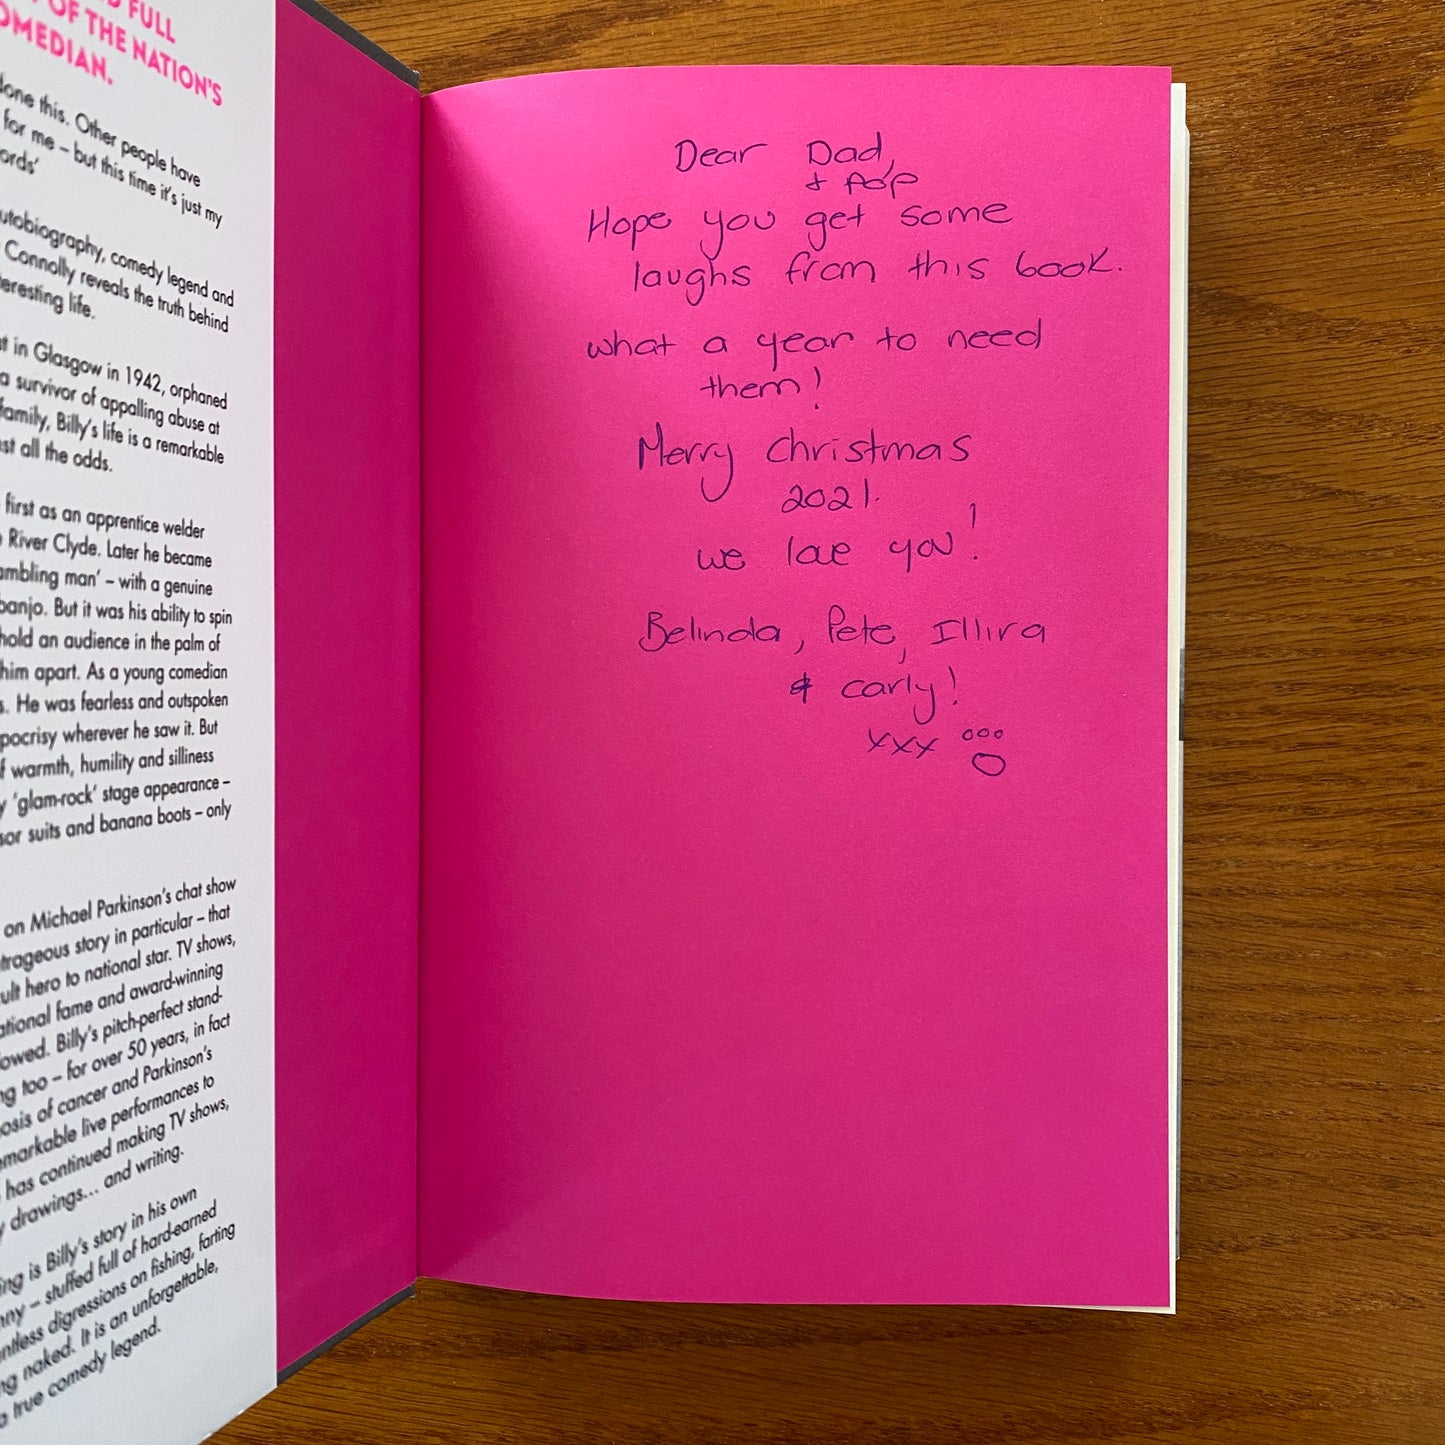 FULL
OF THE NATION'S
OMEDIAN.
done this. Other people have
for me – but this time it's just my
ords'
utobiography, comedy legend and
Connolly reveals the truth behind
teresting life.
st in Glasgow in 1942, orphaned
a survivor of appalling abuse at
family, Billy's life is a remarkable
st all the odds.
first as an apprentice welder
River Clyde. Later he became
ambling man' – with a genuine
banjo. But it was his ability to spin
hold an audience in the palm of
him apart. As a young comedian
s. He was fearless and outspoken
pocrisy wherever he saw it. But
f warmth, humility and silliness
y 'glam-rock' stage appearance –
sor suits and banana boots – only
on Michael Parkinson's chat show
trageous story in particular – that
ult hero to national star. TV shows,
ational fame and award-winning
lowed. Billy's pitch-perfect stand-
ng too – for over 50 years, in fact
osis of cancer and Parkinson's
emarkable live performances to
has continued making TV shows,
y drawings... and writing.
ing is Billy's story in his own
nny – stuffed full of hard-earned
ntless digressions on fishing, farting
ng naked. It is an unforgettable,
a true comedy legend.
Dear Dad,
+ Pop
Hope you get some
laughs from this book.
what a year to need
them!
Merry Christmas
2021.
we love you!
Belinda, Pete, Illira
& Carly!
xxx